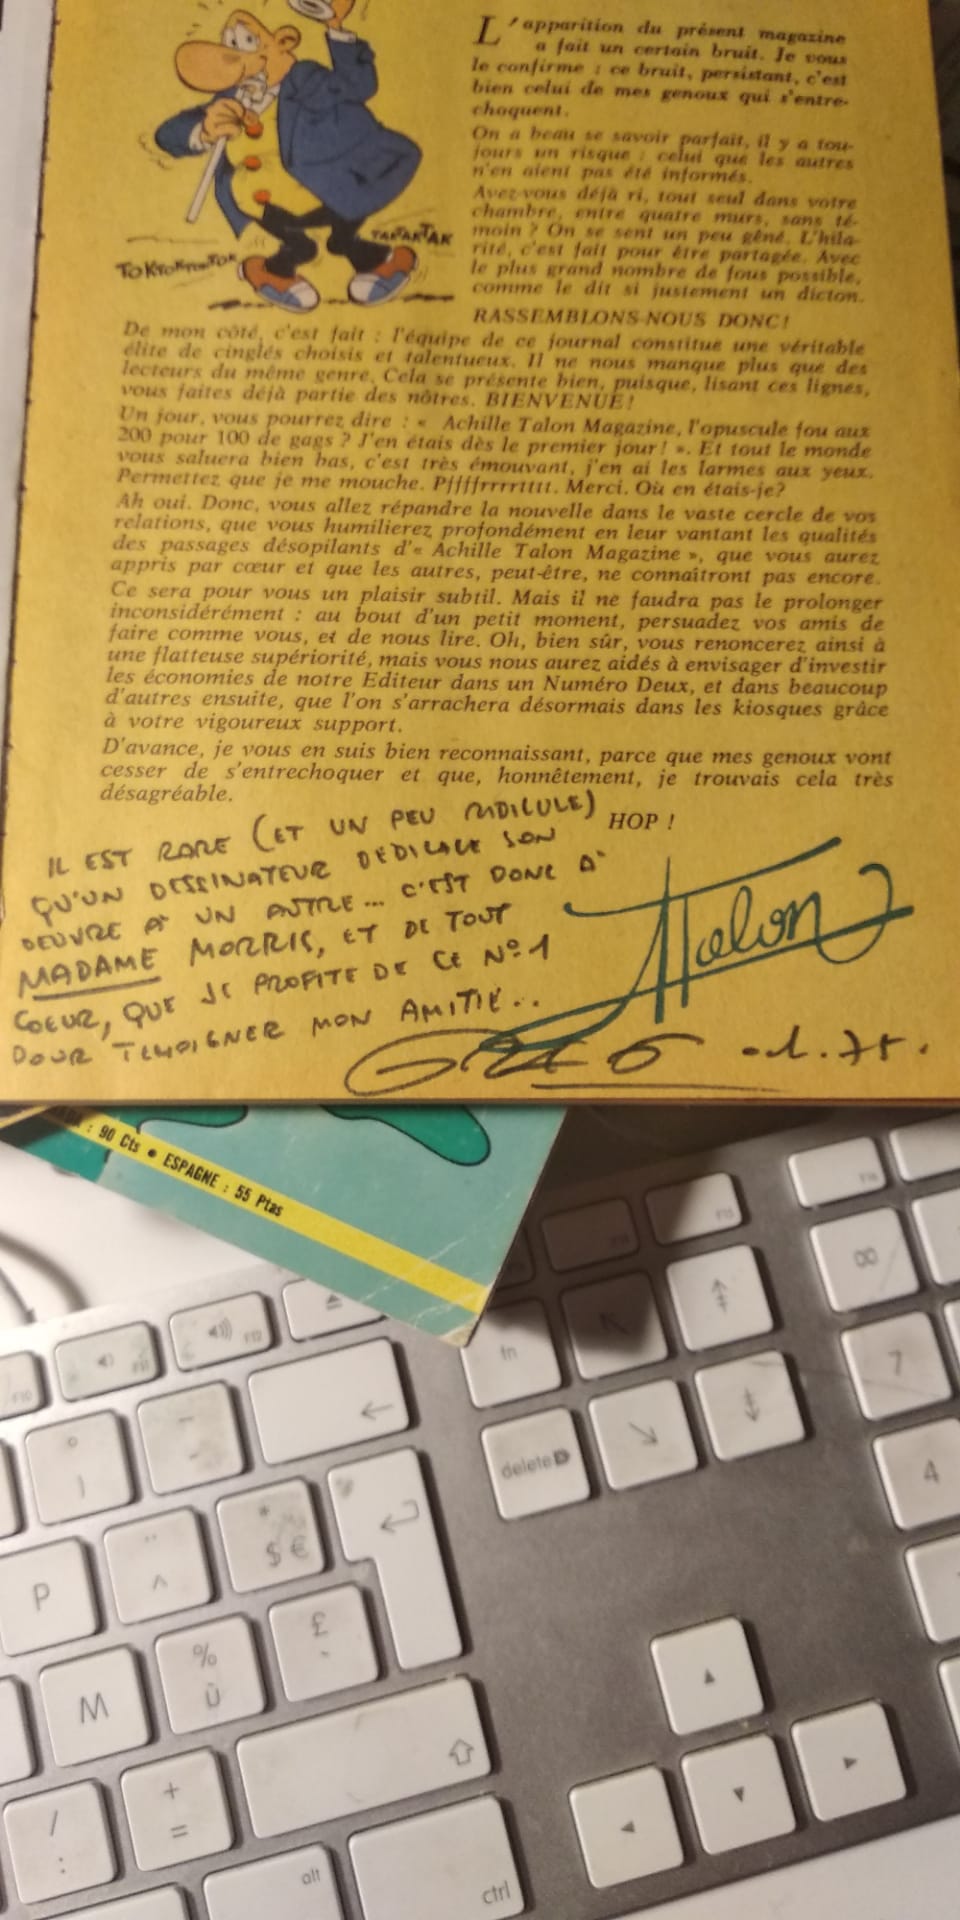 L'apparition du présent magazine
a fait un certain bruit. Je vous
le confirme : ce bruit, persistant, c'est
bien celui de mes genoux qui s'entre-
choquent.
On a beau se savoir parfait, il y a tou-
jours un risque : celui que les autres
n'en aient pas été informés.
Avez-vous déjà ri, tout seul dans votre
chambre, entre quatre murs, sans té-
moin ? On se sent un peu gêné. L'hila-
rité, c'est fait pour être partagée. Avec
le plus grand nombre de fous possible,
comme le dit si justement un dicton.
TAKATAK
RASSEMBLONS-NOUS DONC!
De mon côté, c'est fait : l'équipe de ce journal constitue une véritable
élite de cinglés choisis et talentueux. Il ne nous manque plus que des
lecteurs du même genre. Cela se présente bien, puisque, lisant ces lignes,
vous faites déjà partie des nôtres. BIENVENUE!
Un jour, vous pourrez dire : « Achille Talon Magazine, l'opuscule fou aux
200 pour 100 de gags ? J'en étais dès le premier jour! ». Et tout le monde
vous saluera bien bas, c'est très émouvant, j'en ai les larmes aux yeux.
Permettez que je me mouche. Pffffrrrrtttt. Merci. Où en étais-je?
Ah oui. Donc, vous allez répandre la nouvelle dans le vaste cercle de vos
relations, que vous humilierez profondément en leur vantant les qualités
des passages désopilants d'« Achille Talon Magazine », que vous aurez
appris par cœur et que les autres, peut-être, ne connaîtront pas encore.
Ce sera pour vous un plaisir subtil. Mais il ne faudra pas le prolonger
inconsidérément : au bout d'un petit moment, persuadez vos amis de
faire comme vous, et de nous lire. Oh, bien sûr, vous renoncerez ainsi à
une flatteuse supériorité, mais vous nous aurez aidés à envisager d'investir
les économies de notre Editeur dans un Numéro Deux, et dans beaucoup
d'autres ensuite, que l'on s'arrachera désormais dans les kiosques grâce
à votre vigoureux support.
D'avance, je vous en suis bien reconnaissant, parce que mes genoux vont
cesser de s'entrechoquer et que, honnêtement, je trouvais cela très
désagréable.
HOP !
IL EST RARE (ET UN PEU RIDICULE)
QU'UN DESSINATEUR DEDICACE SON
OEUVRE A UN AUTRE... C'EST DONC A
MADAME MORRIS, ET DE TOUT
COEUR, QUE JE PROFITE DE CE Nº1
POUR TEMOIGNER MON AMITIÉ...
ATalon
GREG
: 90 Cts • ESPAGNE : 55 Ptas
F10
F11
F12
fn
delete
7
4
8
°
)
_
-
*
$ €
¨
^
P
£
%
ù
M
+
=
/
:
alt
ctrl